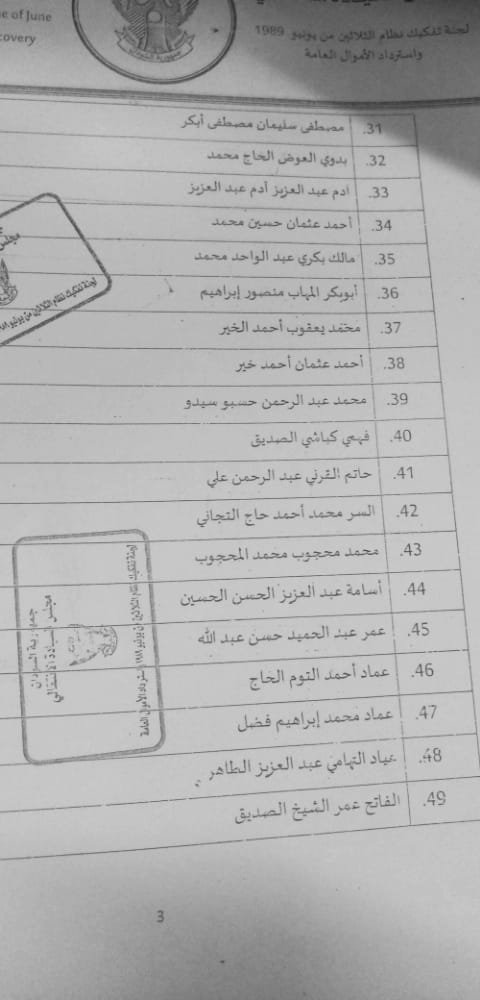 لجنة تفكيك نظام الثلاثين من يونيو 1989
واسترداد الأموال العامة
e of June
covery
جمهورية السودان
31. مصطفى سليمان مصطفى أبكر
32. بدوي العوض الحاج محمد
33. ادم عبد العزيز أدم عبد العزيز
34. أحمد عثمان حسين محمد
35. مالك بكري عبد الواحد محمد
36. أبوبكر المهاب منصور إبراهيم
37. محمد يعقوب أحمد الخير
38. أحمد عثمان أحمد خير
39. محمد عبد الرحمن حسبو سيدو
40. فهمي كباشي الصديق
41. حاتم القرني عبد الرحمن علي
42. السر محمد أحمد حاج التجاني
43. محمد محجوب محمد المحجوب
44. أسامة عبد العزيز الحسن الحسين
45. عمر عبد الحميد حسن عبد الله
46. عماد أحمد التوم الحاج
47. عماد محمد إبراهيم فضل
48. عياد التهامي عبد العزيز الطاهر
49. الفاتح عمر الشيخ الصديق
مجلس
لجنة تفكيك نظام الثلاثين من يونيو
جمهورية السودان
مجلس السيادة الانتقالي
لجنة تفكيك نظام الثلاثين من يونيو ١٩٨٩ واسترداد الأموال العامة
3